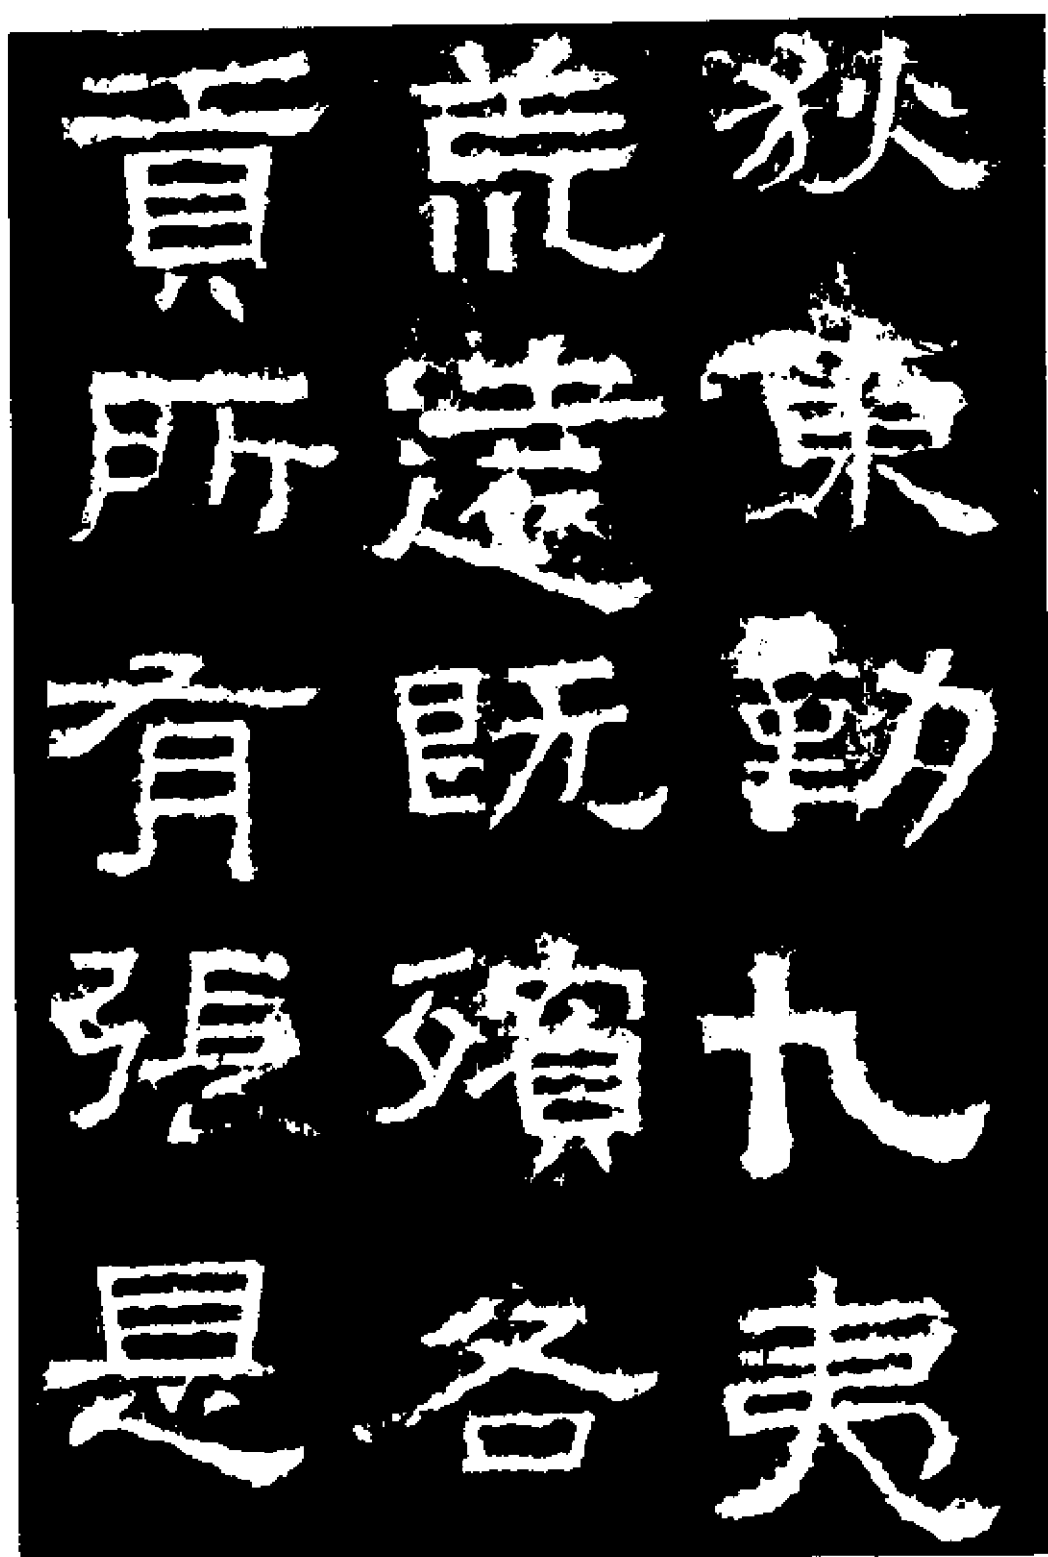 狄東勤九夷
荒遠既殯各
貢所有張是